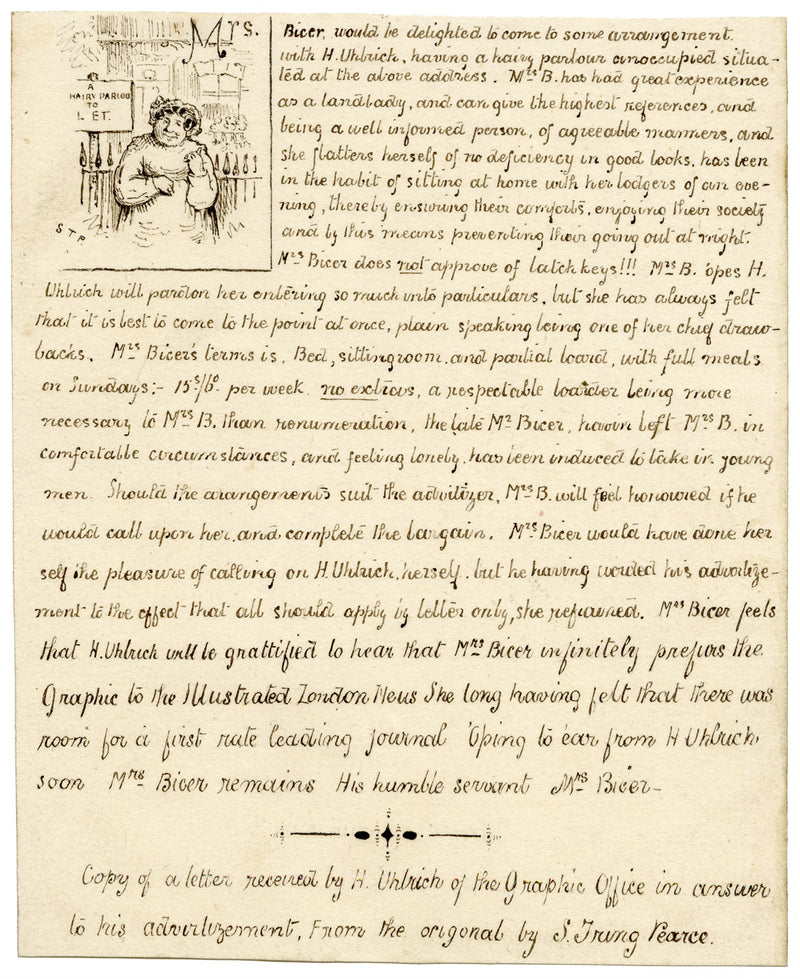 Mrs.
A
HAIRY PARLOU
TO
LET.
S T P
Bicer, would be delighted to come to some arrangement.
with H. Uhlrich, having a hairy parlour unoccupied situa-
ted at the above address. Mrs B. has had great experience
as a landlady, and can give the highest references, and
being a well informed person, of agreeable manners, and
she flatters herself of no deficiency in good looks, has been
in the habit of sitting at home with her lodgers of an eve-
ning, thereby ensuring their comforts, enjoying their society
and by this means preventing their going out at night.
Mrs Bicer does not approve of latch keys!!! Mrs B. 'opes H.
Uhlrich will pardon her entering so much into particulars, but she has always felt
that it is best to come to the point at once, plain speaking being one of her chief draw-
backs. Mrs Bicer's terms is, Bed, sittingroom and partial board, with full meals
on Sundays:- 15s/6d. per week no extras, a respectable boarder being more
necessary to Mrs B. than renumeration, the late Mr Bicer, havin left Mrs B. in
comfortable circumstances, and feeling lonely, has been induced to take in young
men. Should the arangements suit the advitizer, Mrs B. will feel honoured if he
would call upon her and complete the bargain. Mrs Bicer would have done her
self the pleasure of calling on H. Uhlrich, herself, but he having worded his advertize-
ment to the effect that all should apply by letter only, she refrained. Mrs Bicer feels
that H. Uhlrich will be grattified to hear that Mrs Bicer infinitely prefurs the
Graphic to the Illustrated London News She long having felt that there was
room for a first rate leading journal 'Oping to 'ear from H Uhlrich
soon Mrs Bicer remains His humble servant Mrs Bicer-
Copy of a letter received by H. Uhlrich of the Graphic Office in answer
to his advirtizement, From the origonal by S. Trung Pearce.